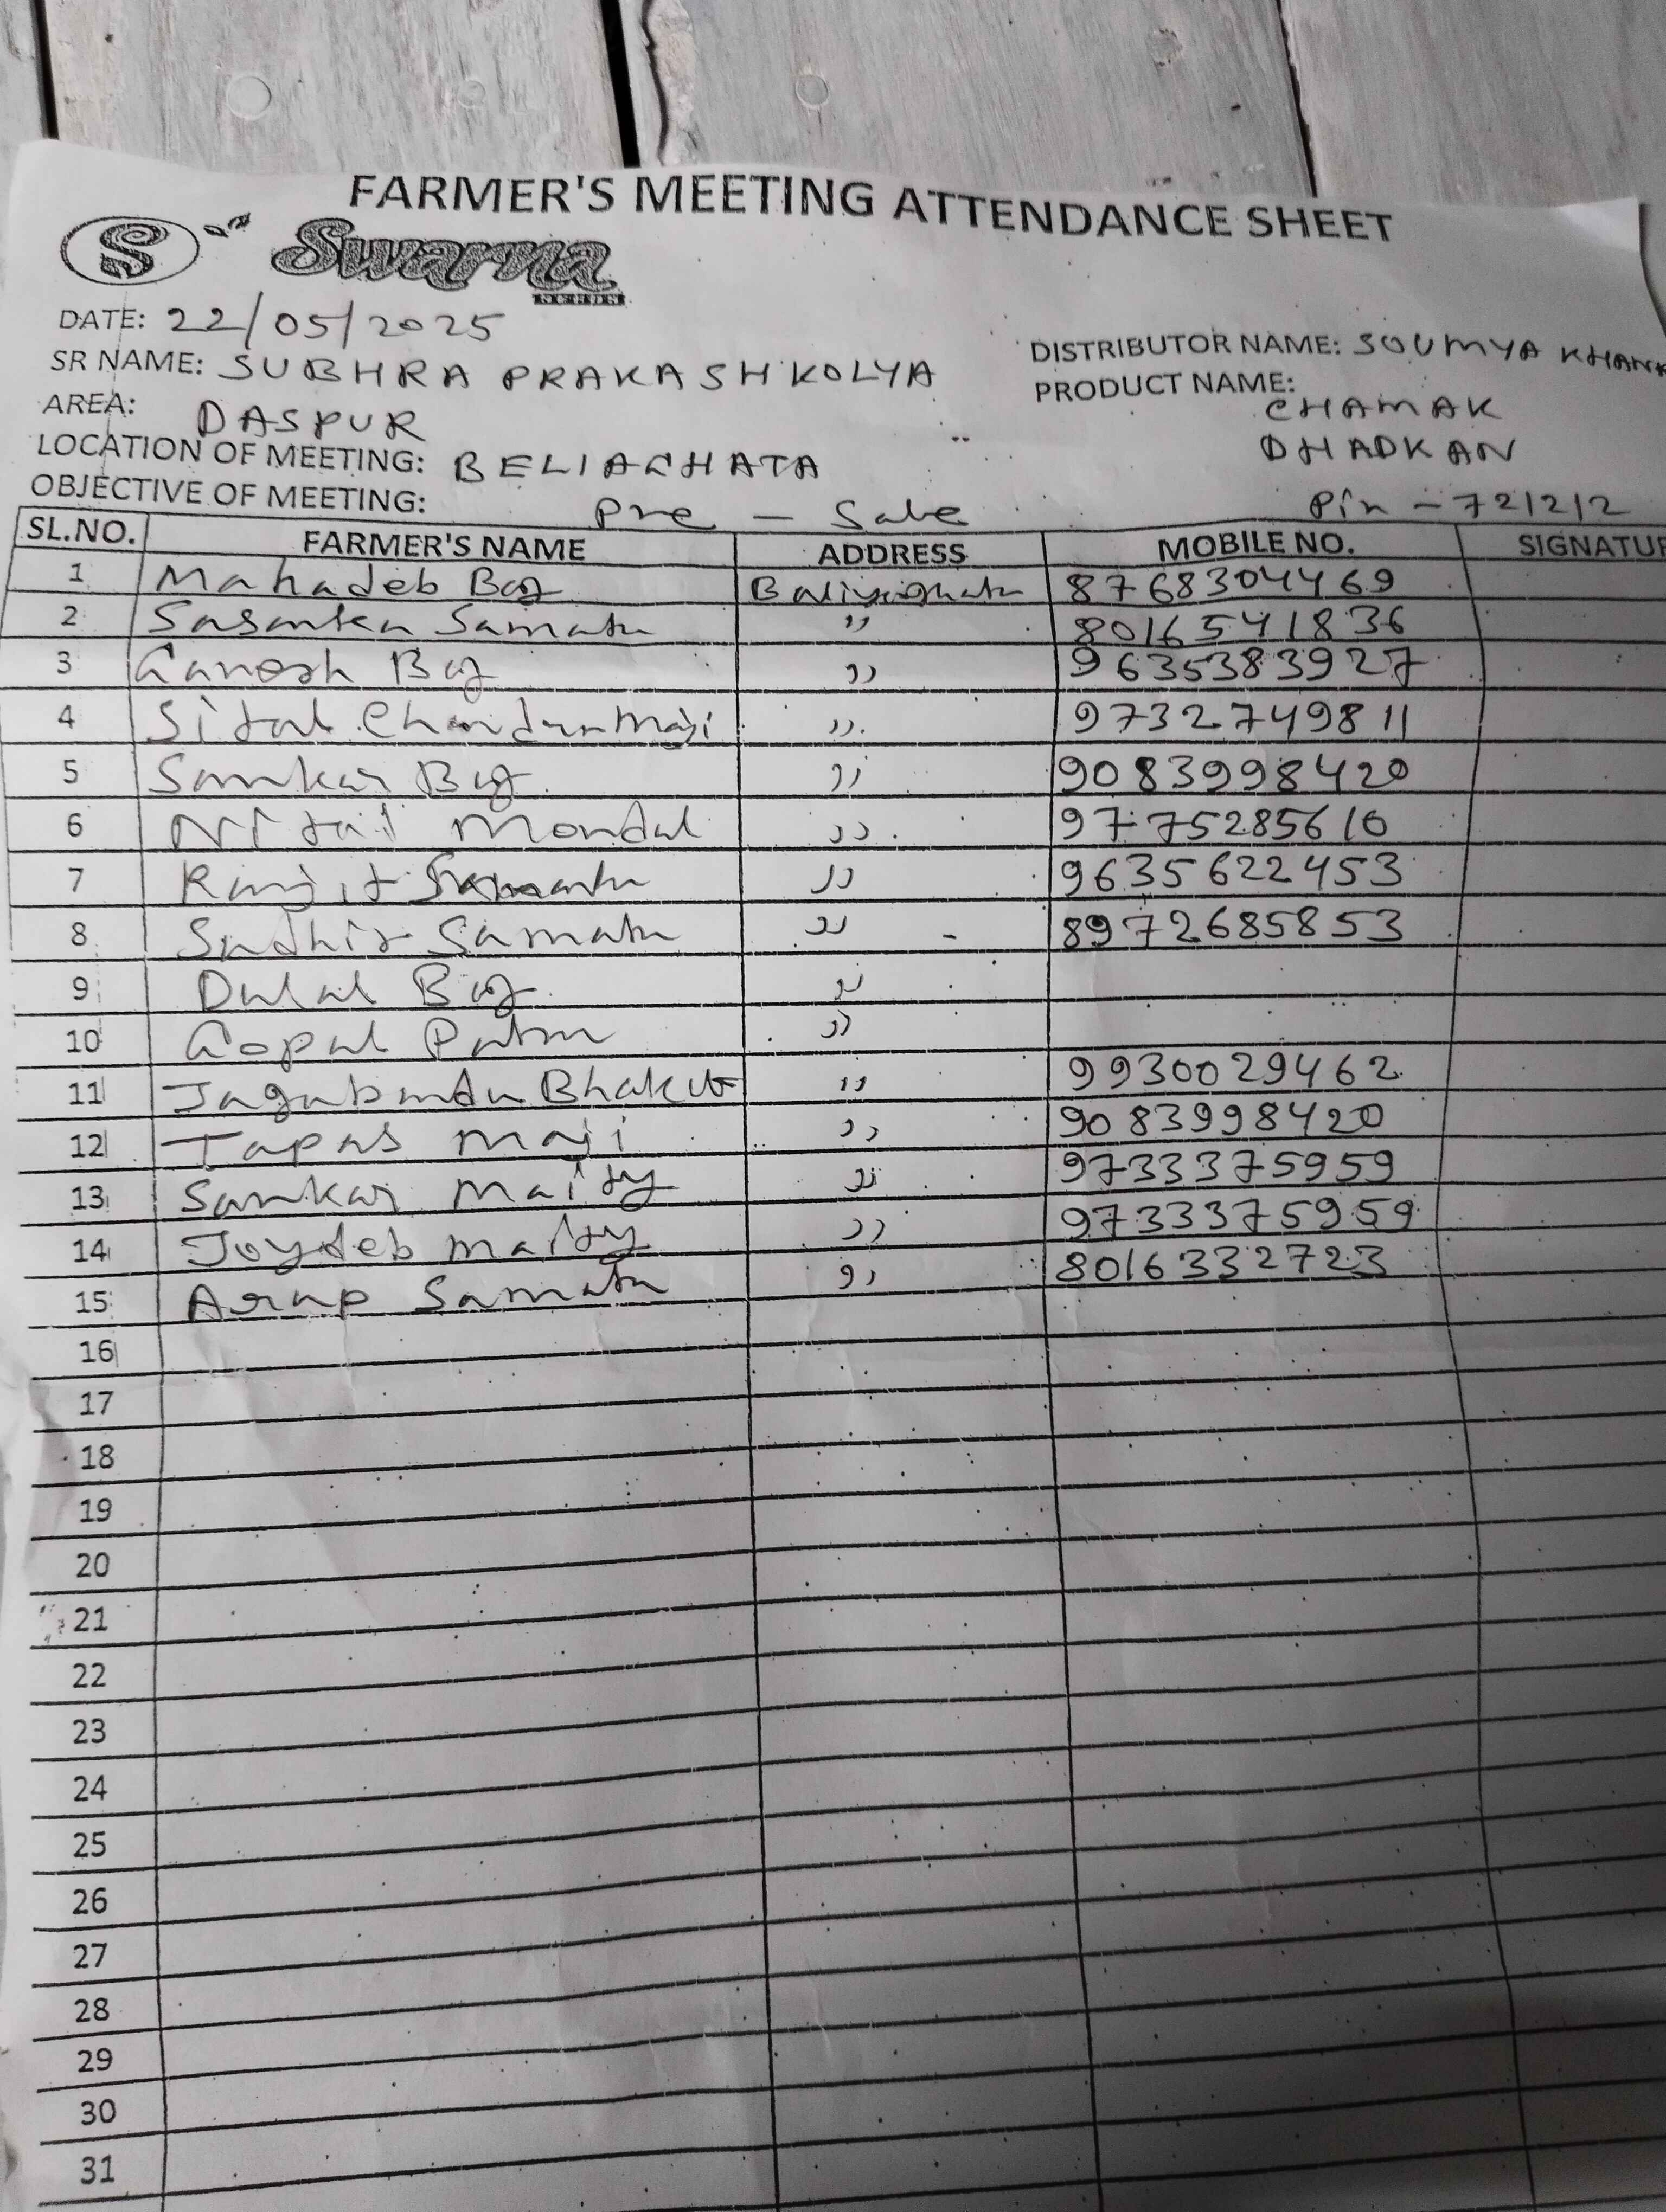 FARMER'S MEETING ATTENDANCE SHEET
S Swarna
DATE: 22/05/2025
SR NAME: SUBHRA PRAKASH KOLYA DISTRIBUTOR NAME: SOUMYA KHAN
AREA: DASPUR PRODUCT NAME: CHAMAK
LOCATION OF MEETING: BELIAGHATA DHADKAN
OBJECTIVE OF MEETING: Pre - Sale Pin - 721212
SL.NO. FARMER'S NAME ADDRESS MOBILE NO. SIGNATUR
1 Mahadeb Bag Baliyaghata 8768304469
2 Sasanka Samata " 8016541836
3 Ganesh Bag " 9635383927
4 Sital Chandra Maji " 9732749811
5 Sankar Bag " 9083998420
6 Nitai Mondal " 9775285610
7 Ranjit Samanta " 9635622453
8 Sudhir Samata " 8972685853
9 Dulal Bag "
10 Gopal Patra "
11 Jagabandu Bhakta " 9930029462
12 Tapas Maji " 9083998420
13 Sankar Maity " 9733375959
14 Joydeb Maity " 9733375959
15 Arup Samata " 8016332723
16
17
18
19
20
21
22
23
24
25
26
27
28
29
30
31